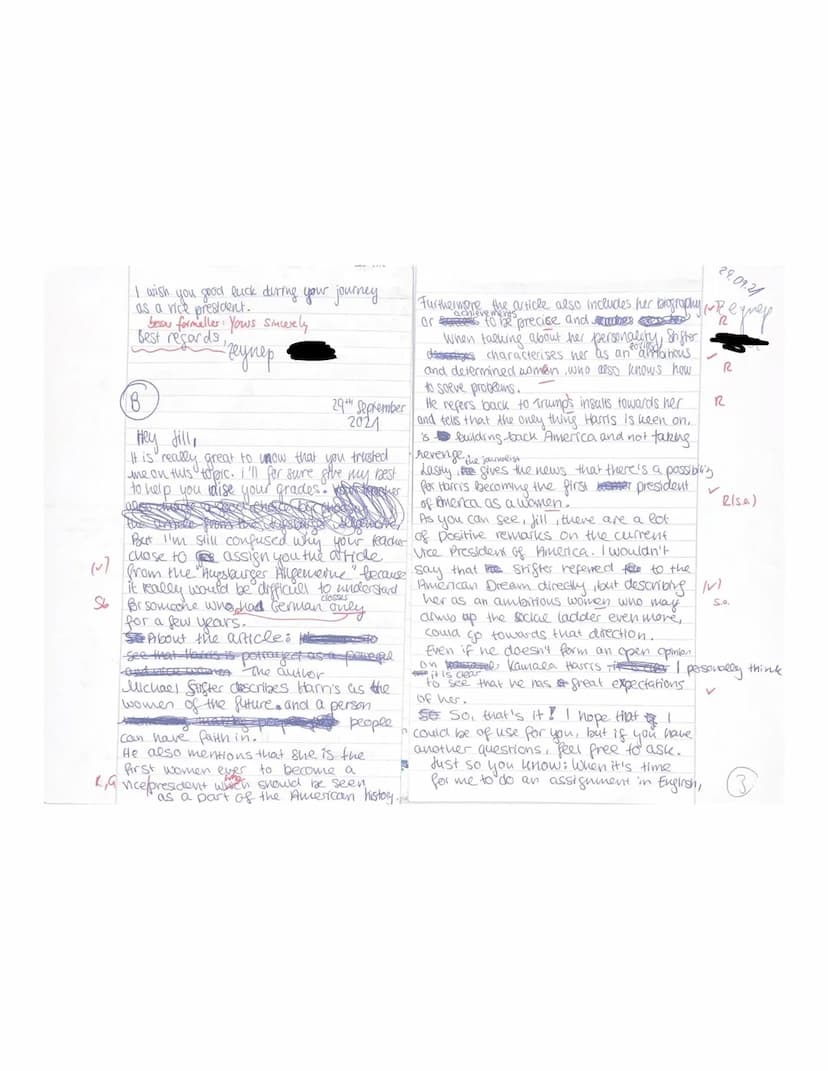 I wish you good luck during your journey
as a vice president.
besser formeller: Yours sincerely
Best regards,
Zeynep
B
29th September
2021
Hey Jill,
It is really great to know that you trusted
me on this topic. I'll for sure give my best
to help you raise your grades.
But I'm still confused why your teacher
chose to assign you the article
(v) from the "Augsburger Allgemeine" because
it really would be difficult to understand
classes
Sb for someone who had German only
for a few years.
About the article:
The author
Michael Stifter describes Harris as the
women of the future and a person
people
can have faith in.
He also mentions that she is the
first women ever to become a
R, G vice president which should be seen
as a part of the American history.
29.09.21
Zeynep
Furthermore the article also includes her biography (v)
achievements
or to be precise and R
When talking about her personality, Stifter
characterises her as an ambitious ✓
and determined women who also knows how R
to solve problems.
He refers back to Trump's insults towards her R
and tells that the only thing Harris is keen on,
is building back America and not taking
revenge.
the journalist
Lastly, gives the news that there's a possibility
for Harris becoming the first president ✓
of America as a women. R(s.o.)
As you can see, Jill, there are a lot
of positive remarks on the current
Vice President of America. I wouldn't
say that Stifter referred to the
American Dream directly, but describing (v)
her as an ambitious women who may s.o.
climb up the social ladder even more,
could go towards that direction.
Even if he doesn't form an open opinion
on Kamala Harris I personally think
it is clear
to see that he has great expectations
of her. ✓
So, that's it! I hope that I
could be of use for you, but if you have
another questions, feel free to ask.
Just so you know: When it's time
for me to do an assignment in English,
3